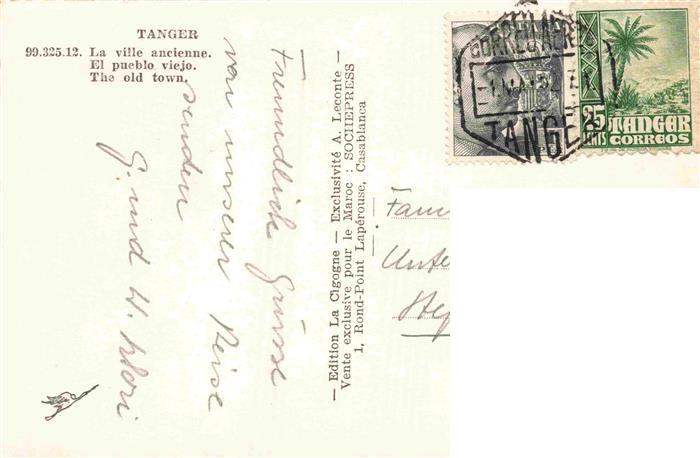 TANGER
99.325.12. La ville ancienne.
El pueblo viejo.
The old town.
Freundlich Grüsse
von unserer Reise
senden
G. und H.
— Edition La Cigogne — Exclusivité A. Leconte —
Vente exclusive pour le Maroc : SOCHEPRESS
1, Rond-Point Lapérouse, Casablanca
CORREO AEREO
TANGER
25
CENTS
TANGER
CORREOS
Fam
Unte